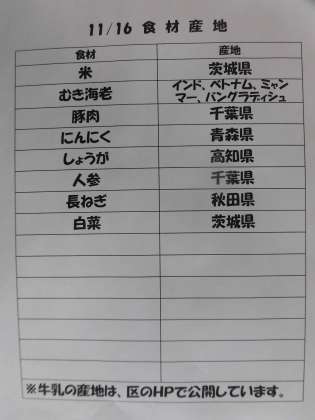 11/16 食材産地
食材 産地
米 茨城県
むき海老 インド、ベトナム、ミャン
マー、バングラディシュ
豚肉 千葉県
にんにく 青森県
しょうが 高知県
人参 千葉県
長ねぎ 秋田県
白菜 茨城県
※牛乳の産地は、区のHPで公開しています。